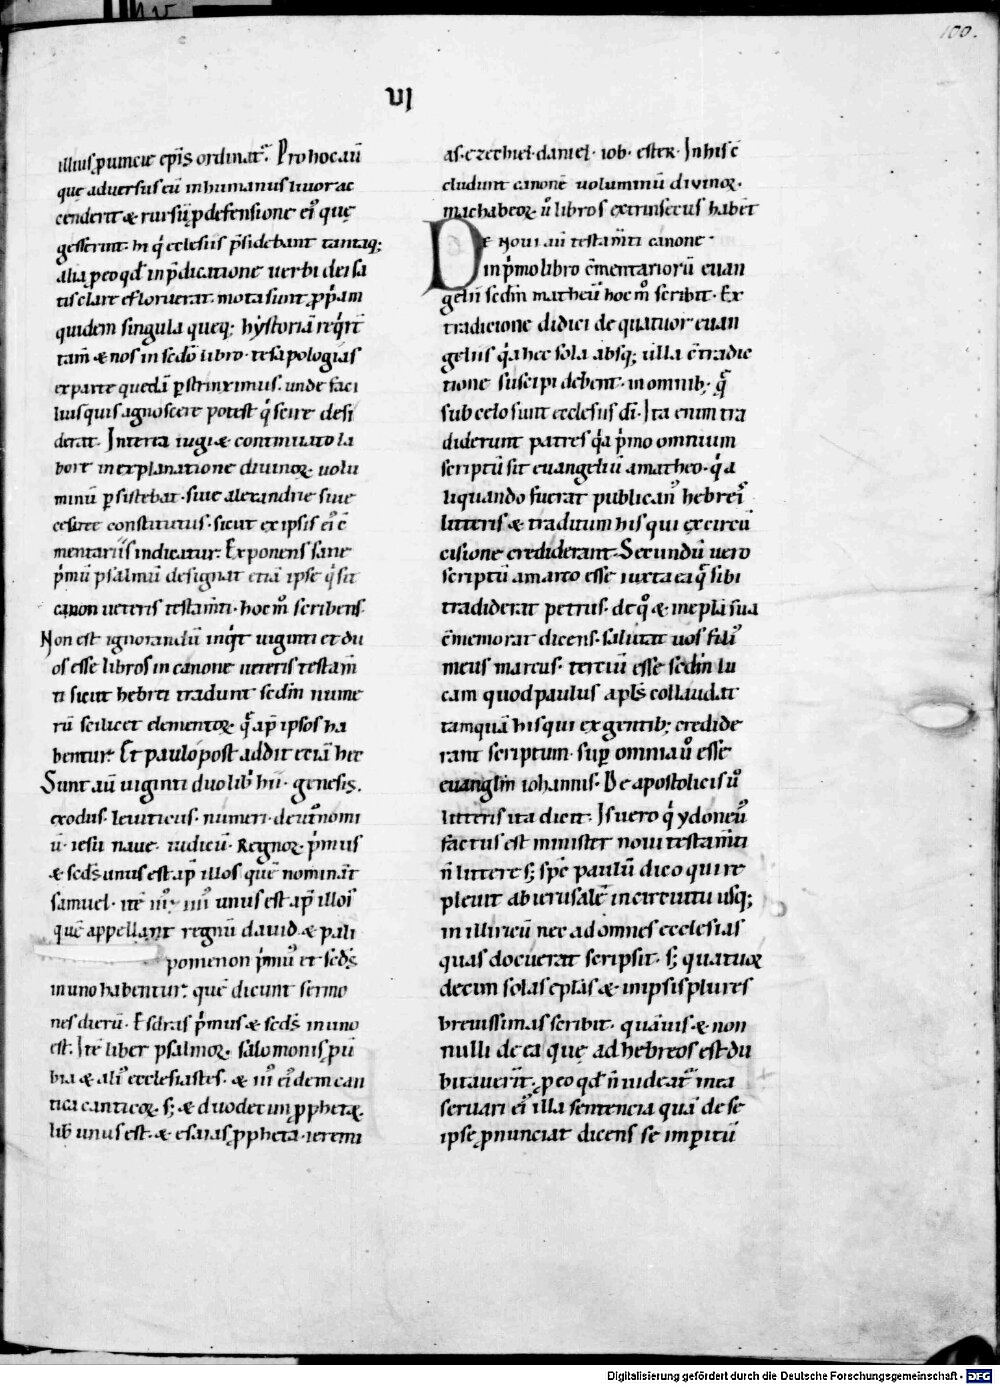 100.
VI
illiusꝓuincie epīs ordinat᷒. Pro hoc aū
quę aduersus eū inhumanus liuor ac
cenderit & rursū ꝓdefensione ei᷒ quę
gesserint hi q̇ ecclesiis p̄sidebant tantaq;
alia ꝓeo qd̄ in p̄dicatione uerbi dei sa
tis clare efloruerat. mota sunt ꝓp̄am
quidem singula queq; hystoriā req̇rt̄
tam̄ & nos in scd̄o libro. resapologias
exparte quedā ꝑstrinximus. unde faci
liusquis agnoscere potest q̇ scire desi
derat. Interea iugi & continuato la
bore in explanatione diuinoꝝ uolu
minū ꝑsistebat. siue alexandrie siue
cesaree constitutus. sicut ex ipsis ei᷒ cō
mentariis indicatur. Exponens sane
ṗmū psalmū designat etiā ipse q̇ sit
canon ueteris testam̄ti. hoc m̊ scribens.
Non est ignorandū inq̇t uiginti et du
os esse libros in canone ueteris testam̄
ti sicut hebrei tradunt scd̄m nume
rū scilicet elementoꝝ q̄ ap̄ ipsos ha
bentur. Et paulo post addit etiā hec
Sunt aū uiginti duo lib̄ hii. genesis.
exodus. leuiticus. numeri. deut̄nomi
ū. iesu naue. iudicū. Regnoꝝ ṗmus
& scds̄ unus est ap̄ illos quē nominant̄
samuel. itē iii᷒ iiii᷒ unus est ap̄ illos
quē appellant regnū dauid & pali
pomenon ṗmū et scds̄
in uno habentur. quē dicunt sermo
nes dierū. Esdras ṗmus & scds̄ in uno
est. Itē liber psalmoꝝ. salomonis ꝓū
bia & ali᷒ ecclesiastes. & iii᷒ ei᷒dem can
tica canticoꝝ. s; & duodecim ꝓphetaꝝ
lib̄ unus est. & esaias ꝓpheta. ieremi
as. ezechiel. daniel. iob. ester. In his cō
cludunt canonē uoluminū diuinoꝝ.
machabeoꝝ u̇ libros extrinsecus habent
De noui aū testam̄ti canone
in ṗmo libro cōmentariorū euan
gelii scd̄m matheū hoc m̊ scribit. Ex
tradicione didici de quatuor euan
geliis q̇a hec sola absq; ulla cōtradic
tione suscipi debent. in omnib; q̄
sub celo sunt ecclesiis dī. Ita enim tra
diderunt patres q̇a ṗmo omnium
scriptū sit euangeliū a matheo. q̇ a
liquando fuerat publican᷒ hebreis
litteris & traditum his qui ex circū
cisione crediderant. Secundū uero
scriptū a marco esse iuxta ea q̄ sibi
tradiderat petrus. de q̊ & in epl̄a sua
cōmemorat dicens. salutat uos fili᷒
meus marcus. terciū esse scd̄m lu
cam quod paulus apls̄ collaudat
tamquā his qui ex gentib; credide
rant scriptum. suꝑ omnia u̇ esse
euanglm̄ iohannis. De apostolicis u̇
litteris ita dicit. Is uero q̇ ydone᷒
factus est minister noui testam̄ti
n̄ littere s; spē paulū dico qui re
pleuit ab ierusalē in circuitu usq;
in illiricū nec ad omnes ecclesias
quas docuerat scripsit. s; quatuor
decim solas epl̄as & in ipsis plures
breuissimas scribit. quāuis & non
nulli de ea quę ad hebreos est du
bitauerīt. ꝓ eo qd̄ n̄ uideat᷒ in ea
seruari ei᷒ illa sentencia quā de se
ipse ꝓnunciat dicens se imꝑitū
Digitalisierung gefördert durch die Deutsche Forschungsgemeinschaft - DFG